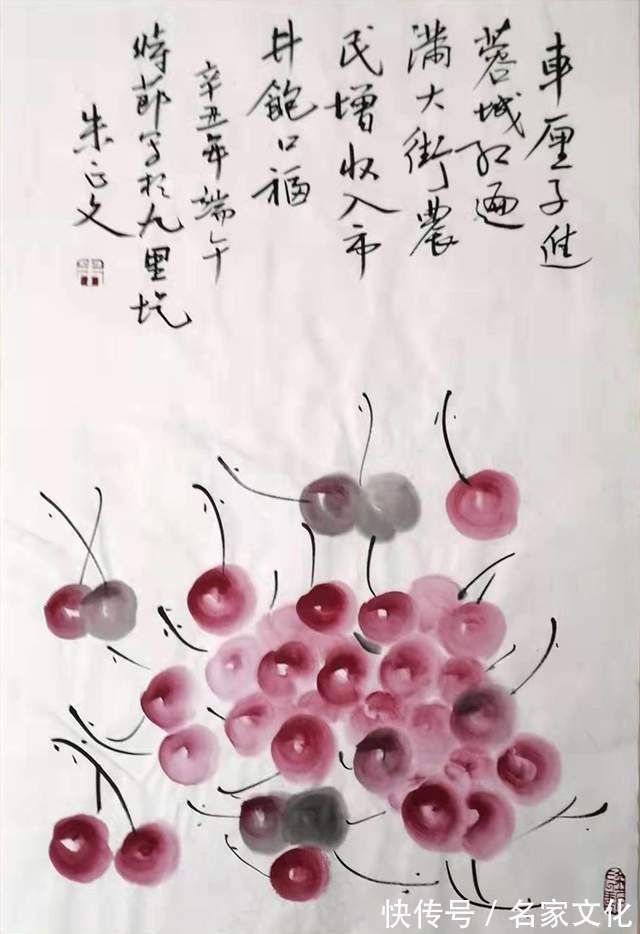 車厘子進
蓉城红遍
满大街農
民增收入市
井飽口福
辛丑年端午
時節写於九里堤
朱正文
快传号 / 名家文化